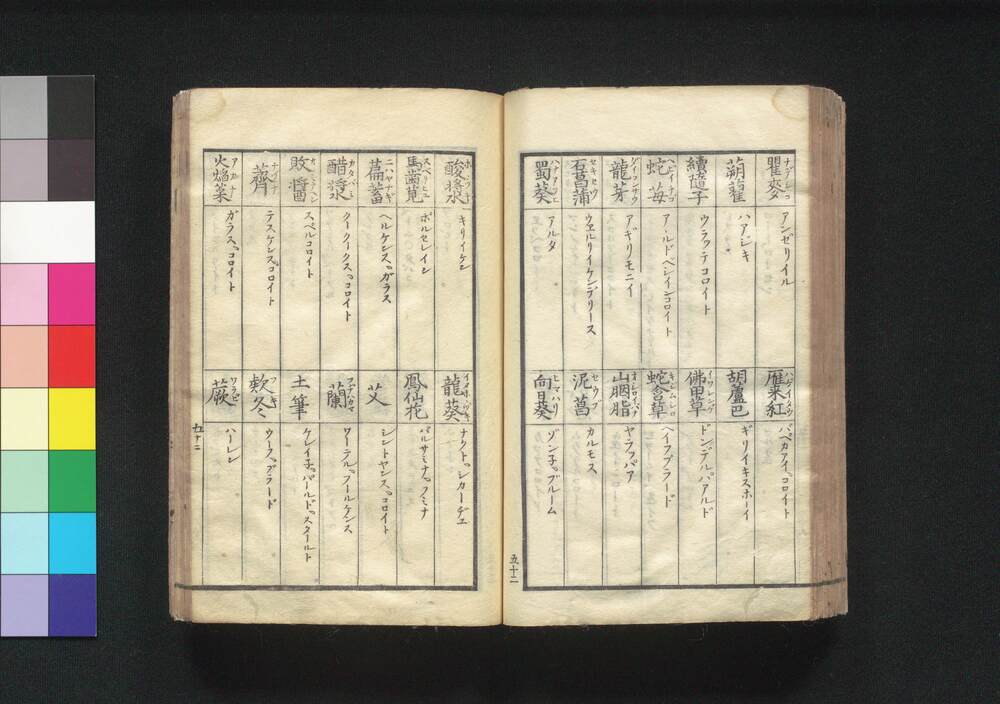 瞿麥 ナデシコ
アンゼリイル
蒴藋
ハアジキ
續隨子
ウラッテコロイト
蛇苺 ヘビイチゴ
アールドベシインコロイト
龍芽
アギリモニイ
石菖蒲 セキセウ
ウヱルリイケンデリース
蜀葵 ハナアフヒ
アルタ
雁来紅 ハゲイタウ
パペカアイ、コロイト
胡蘆巴
ギリイキスホーイ
佛甲草
ドンデルパアルド
蛇含草
ヘイフブラード
山胭脂 オシロイバナ
ヤラッパア
泥菖 セウブ
カルモス
向日葵 ヒマハリ
ゾン子ブルーム
五十二
酸漿 ホフヅキ
キリイケン
馬齒莧 スベリヒユ
ポルセレイン
萹蓄 ニハヤナギ
ヘルケンス、ガラス
醋漿 カタバミ
クークイクス、コロイト
敗醬
スペルコロイト
薺 ナヅナ
テスケンス、コロイト
火焔菜 アカナ
ガラス、コロイト
龍葵
ナクト、シカーデエ
鳳仙花
バルサミナ、フミナ
艾
シントヤンス、コロイト
蘭 フヂバカマ
ワーテル、フールケンス
土筆
ケレイ子、パールド、スタールト
欵冬 フキ
ウース、ブラード
蕨 ワラビ
ハーレン
五十二